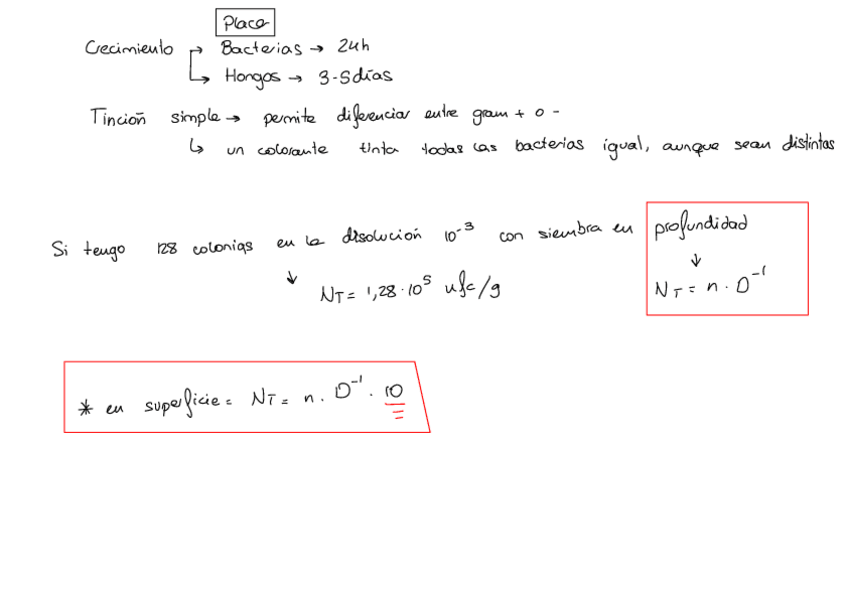 Placa
Crecimiento → Bacterias → 24h
↳ Hongos → 3-5 días
Tinción simple → permite diferenciar entre gram + o -
↳ un colorante tinta todas las bacterias igual, aunque sean distintas
Si tengo 128 colonias en la disolución 10⁻³ con siembra en profundidad
↓ N_T = 1,28·10⁵ ufc/g
↓
N_T = n · D⁻¹
* en superficie = N_T = n · D⁻¹ · 10